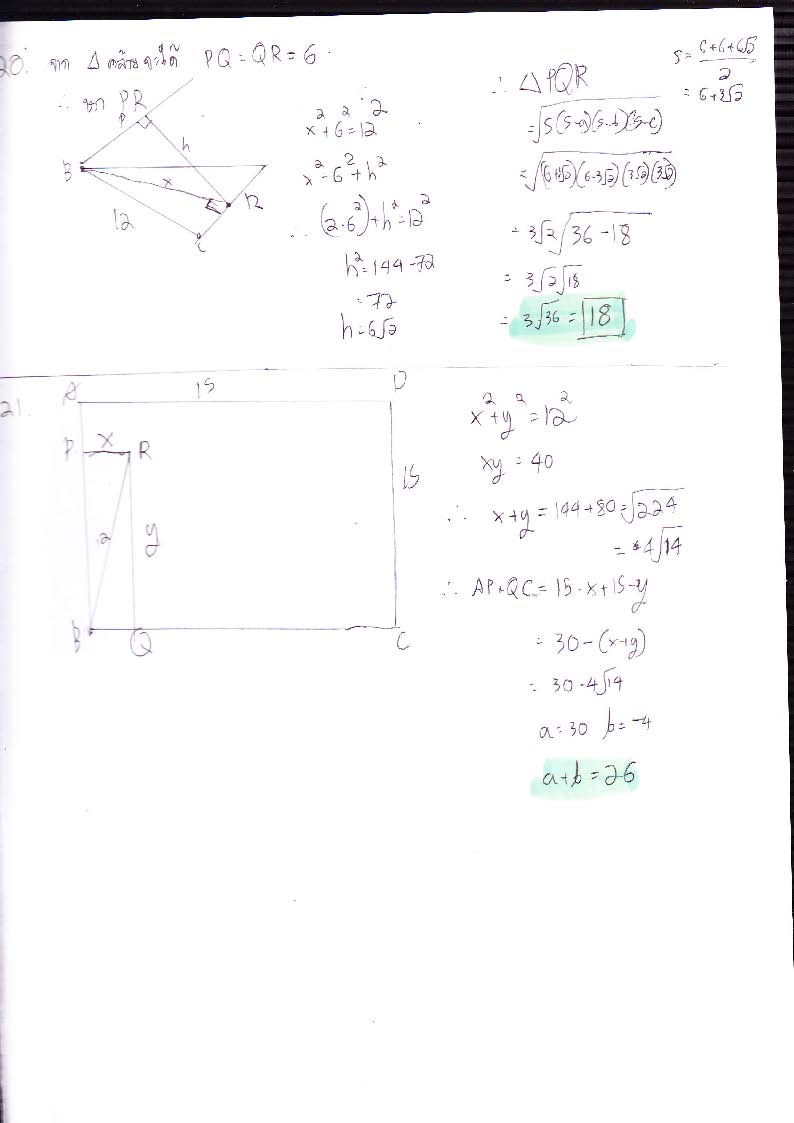 20. จาก Δ คล้ายจะได้ PQ = QR = 6
∴ หา PR
P
h
B
x
R
12
C
x² + 6² = 12²
x² = 6² + h²
∴ (2·6²) + h² = 12²
h² = 144 - 72
= 72
h = 6√2
∴ △PQR
= √S(S-a)(S-b)(S-c)
= √(6+3√2)(6-3√2)(3√2)(3√2)
= 3√2 √36-18
= 3√2 √18
= 3√36 = 18
S = 6+6+6√2 / 2
= 6+3√2
21.
A 15 D
P x R
15
12 y
B Q C
x² + y² = 12²
xy = 40
∴ x+y = 144+80 = √224
= 4√14
∴ AP+QC = 15-x+15-y
= 30-(x+y)
= 30-4√14
a = 30 b = -4
a+b = 26